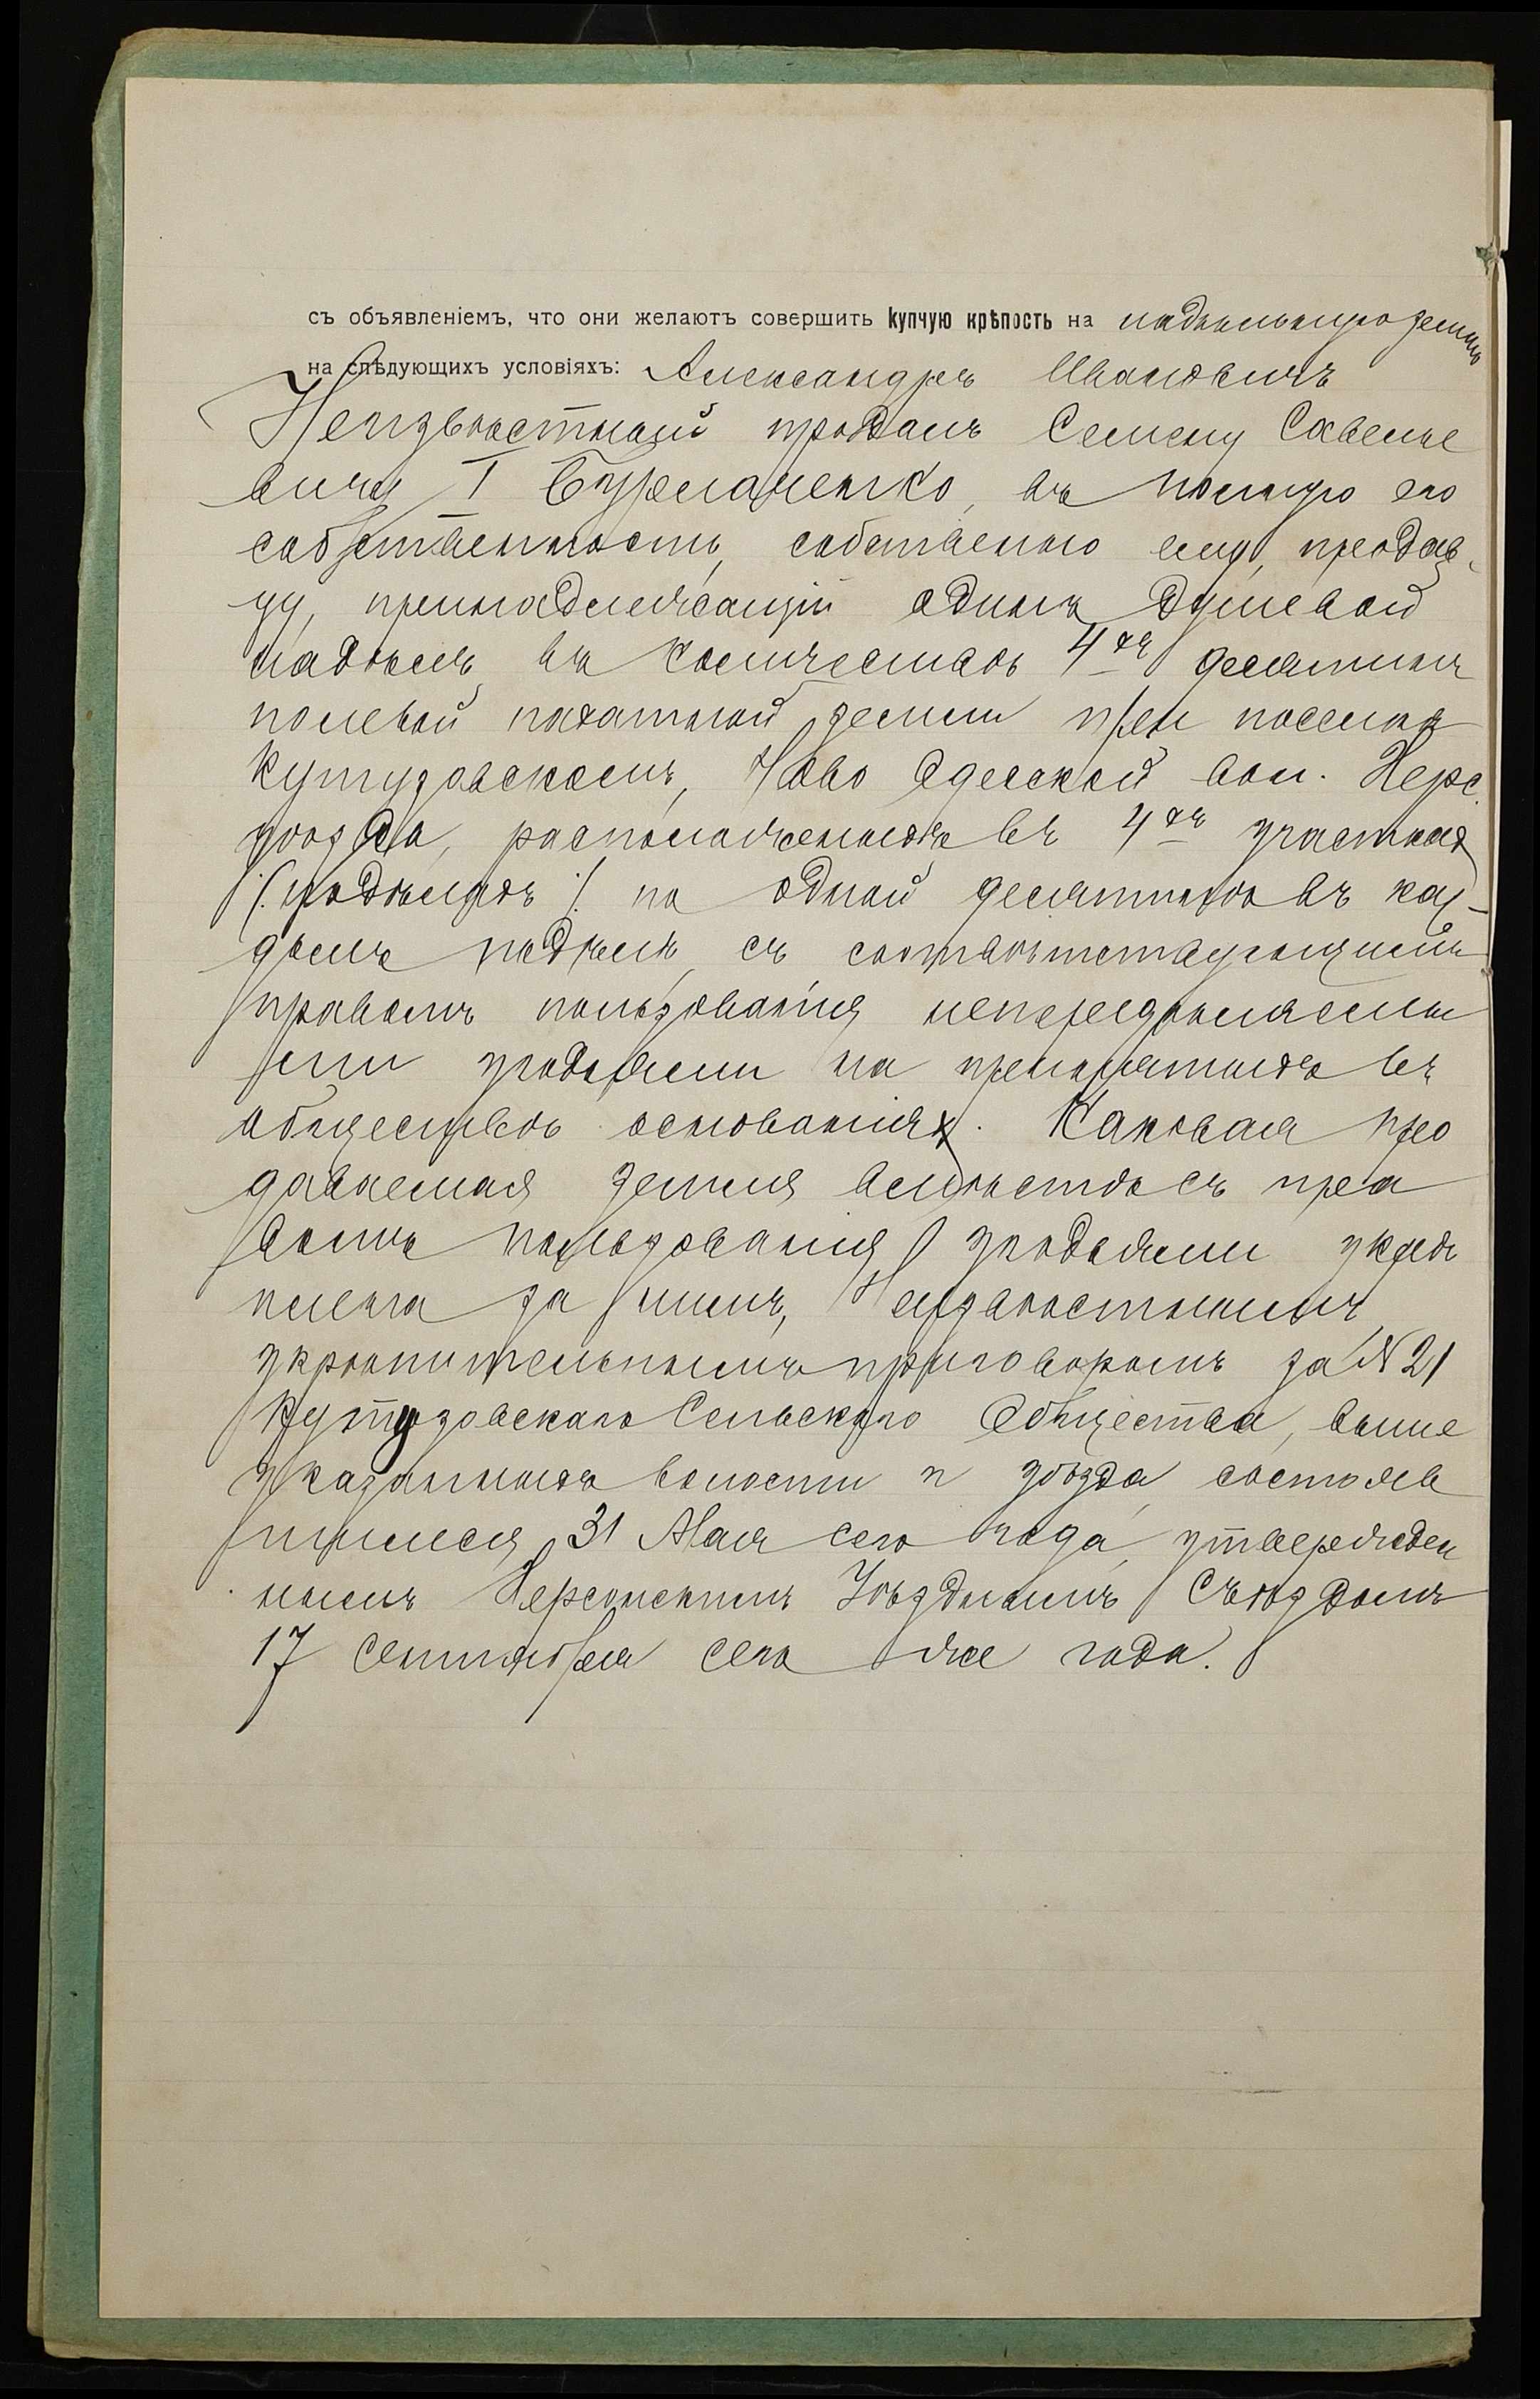 съ объявленіемъ, что они желаютъ совершить купчую крѣпость на надѣльную землю
на слѣдующихъ условіяхъ: Александръ Ивановичъ
Неизвѣстный продалъ Семену Савелье
вичу I Бурлаченко, въ полную его
собственность, собственно ему, продав-
цу, принадлежащій одинъ душевой
надѣлъ въ количествѣ 4хъ десятинъ
полевой пахатной земли при поселкѣ
Кутузовскомъ, Ново Одесской вол. Херс.
уѣзда, расположенныхъ въ 4хъ участках
/: подѣлахъ :/ по одной десятинѣ въ каж-
домъ подѣлѣ, съ соотвѣтствующимъ
правомъ пользованія непередѣляемы
ми угодьями на принятыхъ въ
обществѣ основаніях. Каковая про
даваемая земля вмѣстѣ съ пра
вомъ пользованія угодьями укрѣ
плена за нимъ, Неизвѣстнымъ,
укрѣпительнымъ приговоромъ за № 21
Кутузовскаго Сельскаго Общества, выше
указанныхъ волости и уѣзда, состояв
шимся 31 Мая сего года, утвержден
нымъ Херсонскимъ Уѣзднымъ Съѣздомъ
17 Сентября сего же года.